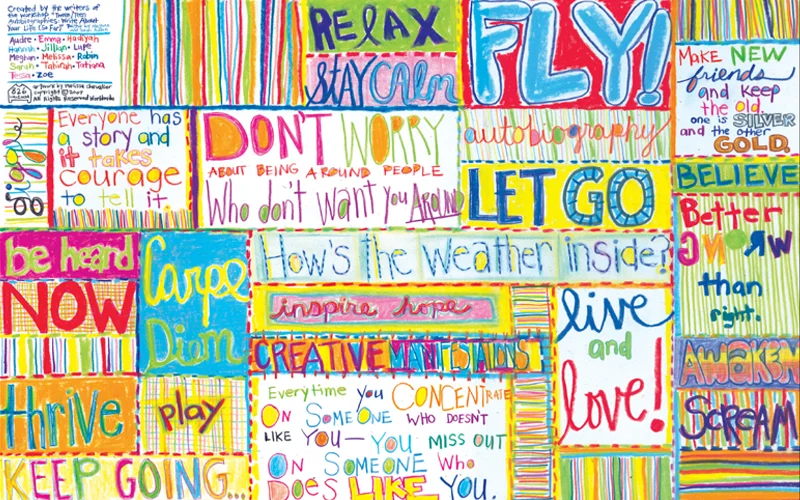 Created by the writers of
the workshop "Tween/Teen
Autobiographies: Write About
Your Life (So Far)"
Audre • Emma • Hadiyah
Hannah • Jillian • Lupe
Meghan • Melissa • Robin
Sarah • Tahirah • Tatiana
Tessa • Zoe
826
artwork by Melissa Chevalier
copyright © 2007
All Rights Reserved Worldwide
RELAX
STAY CALM
FLY!
Make NEW
friends
and keep
the old.
one is SILVER
and the other
GOLD.
giggle
Everyone has
a story and
it takes
courage
to tell it.
DON'T WORRY
ABOUT BEING AROUND PEOPLE
Who don't want you AROUND
autobiography
LET GO
BELIEVE
Better
WRONG
than
right.
be heard
NOW
Carpe
Diem
How's the weather inside?
inspire hope
CREATIVE MANIFESTATIONS
live
and
love!
AWAKEN
SCREAM
thrive
play
KEEP GOING...
Everytime you CONCENTRATE
ON SOMEONE WHO DOESN'T
LIKE YOU— YOU MISS OUT
ON SOMEONE Who
DOES LIKE YOU.